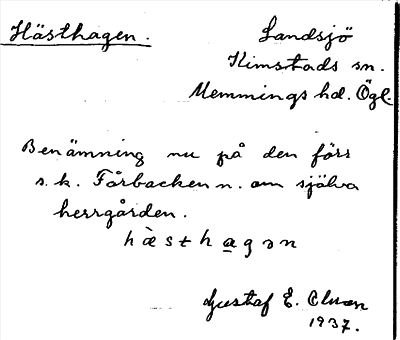 Hästhagen.
Landsjö
Kimstads sn.
Memmings hd. Ögl.
Benämning nu på den förr
s.k. Fårbacken n. om själva
herrgården.
hæ̀sthagən
Gustaf E.
1937.